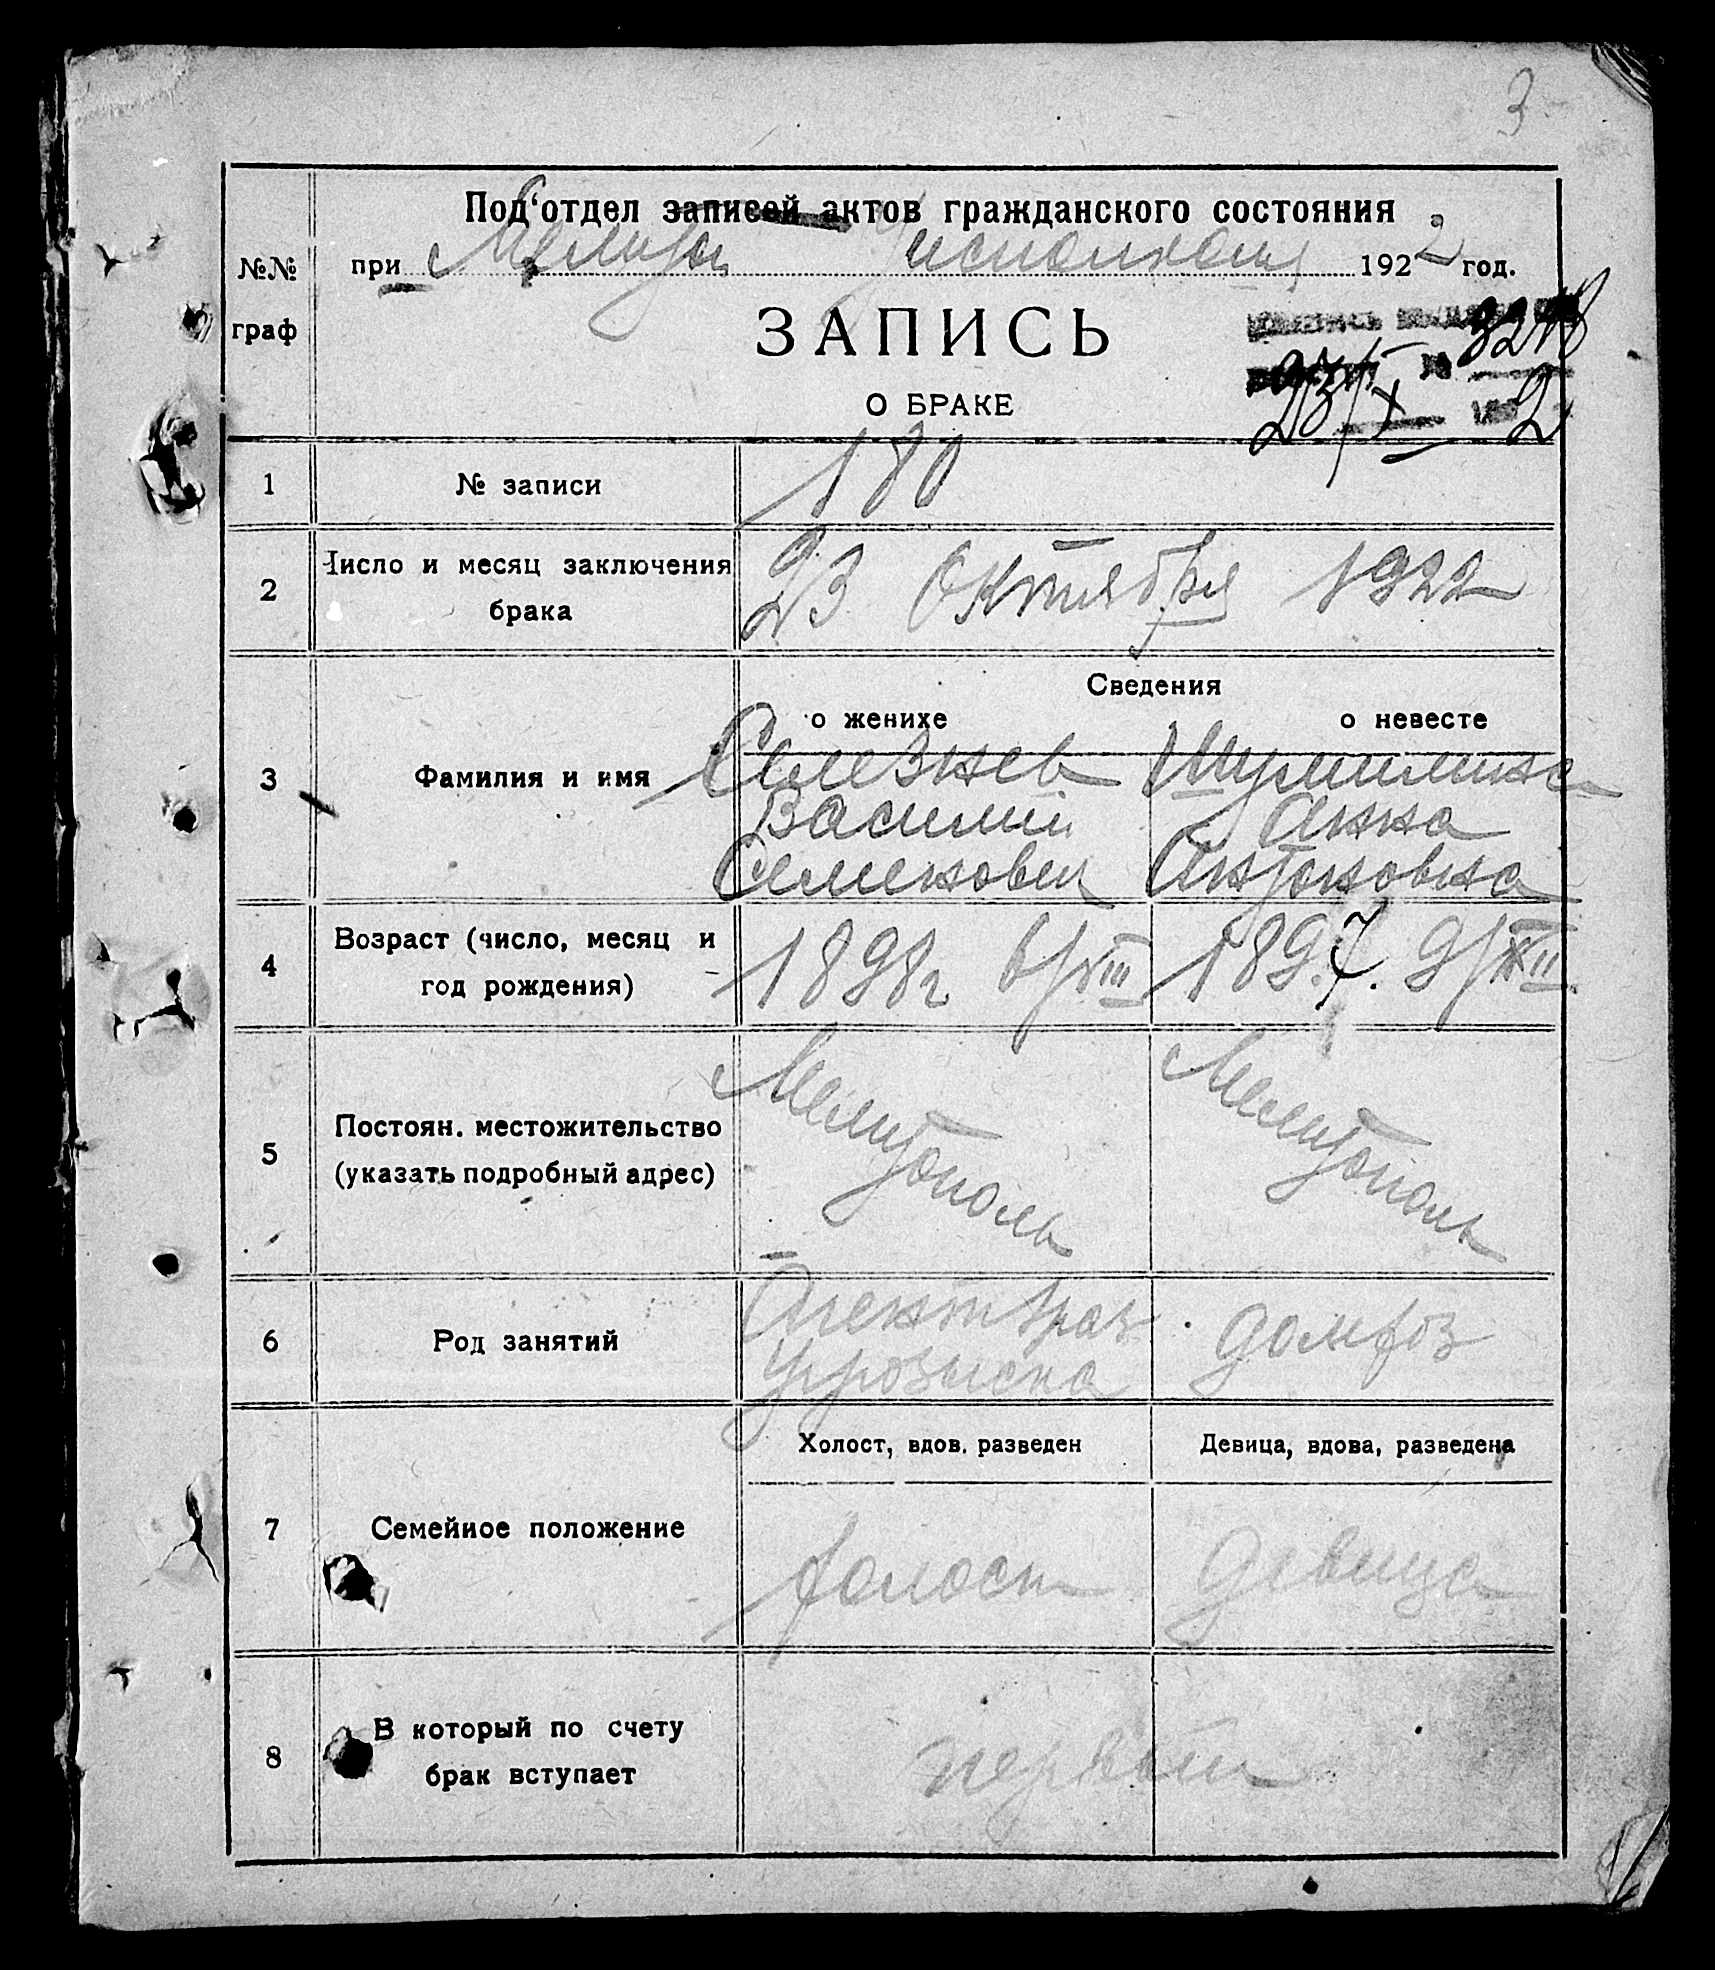 3
Под‘отдел записей актов гражданского состояния
№№ граф
при Мелитоп Уисполкоме 1922 год.
ЗАПИСЬ
О БРАКЕ
№ 3248
23/X 2
1 № записи 180
2 Число и месяц заключения брака 23 Октября 1922
Сведения
о женихе о невесте
3 Фамилия и имя
Селезнев Шумилина
Василий Анна
Семенович Антоновна
4 Возраст (число, месяц и год рождения) 1898г 6/VIII 1897. 9/XII
5 Постоян. местожительство (указать подробный адрес) Мелитополь Мелитополь
6 Род занятий Агент Ураз Угрозыска домхоз
Холост, вдов. разведен Девица, вдова, разведена
7 Семейное положение холост девица
8 В который по счету брак вступает первый